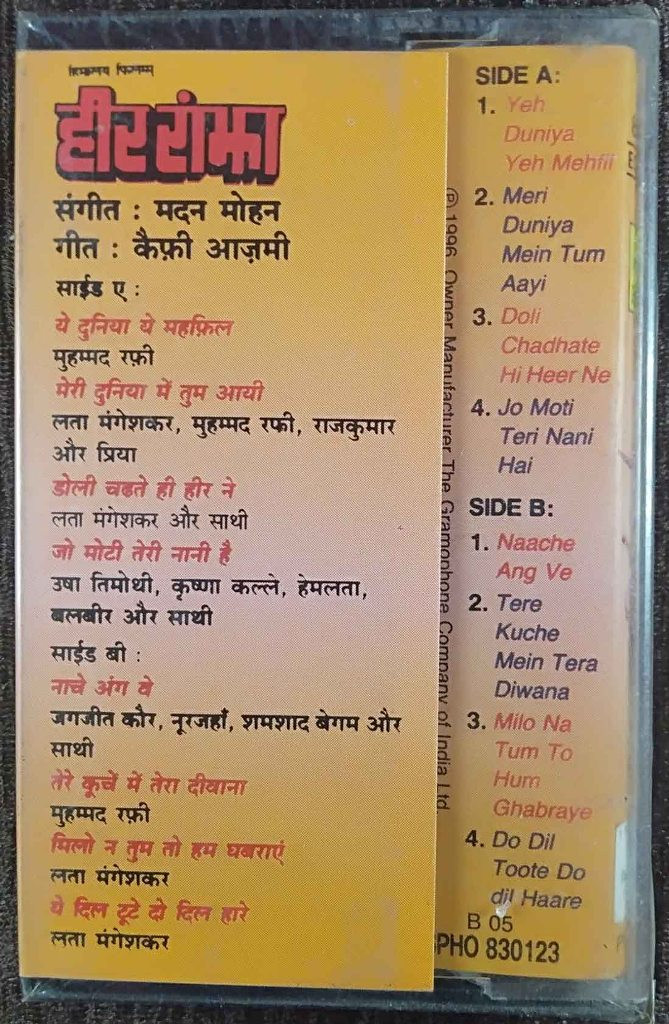 हिमालय फिल्मस्
हीर रांझा
संगीत : मदन मोहन
गीत : कैफ़ी आज़मी
साईड ए :
ये दुनिया ये महफ़िल
मुहम्मद रफ़ी
मेरी दुनिया में तुम आयी
लता मंगेशकर, मुहम्मद रफी, राजकुमार
और प्रिया
डोली चढते ही हीर ने
लता मंगेशकर और साथी
जो मोटी तेरी नानी है
उषा तिमोथी, कृष्णा कल्ले, हेमलता,
बलबीर और साथी
साईड बी :
नाचे अंग वे
जगजीत कौर, नूरजहाँ, शमशाद बेगम और
साथी
तेरे कूचें में तेरा दीवाना
मुहम्मद रफ़ी
मिलो न तुम तो हम घबराएं
लता मंगेशकर
ये दिल टूटे दो दिल हारे
लता मंगेशकर
℗ 1996, Owner Manufacturer The Gramophone Company of India Ltd.
SIDE A:
1. Yeh
Duniya
Yeh Mehfil
2. Meri
Duniya
Mein Tum
Aayi
3. Doli
Chadhate
Hi Heer Ne
4. Jo Moti
Teri Nani
Hai
SIDE B:
1. Naache
Ang Ve
2. Tere
Kuche
Mein Tera
Diwana
3. Milo Na
Tum To
Hum
Ghabraye
4. Do Dil
Toote Do
dil Haare
B 05
PHO 830123